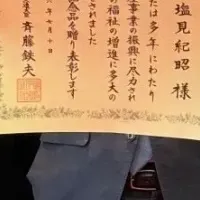 塩見紀昭 様
たは多年にわたり
事業の振興に尽力され
の福祉の増進に多大の
されました
念品を贈り表彰します
年七月十日
斉藤鉄夫